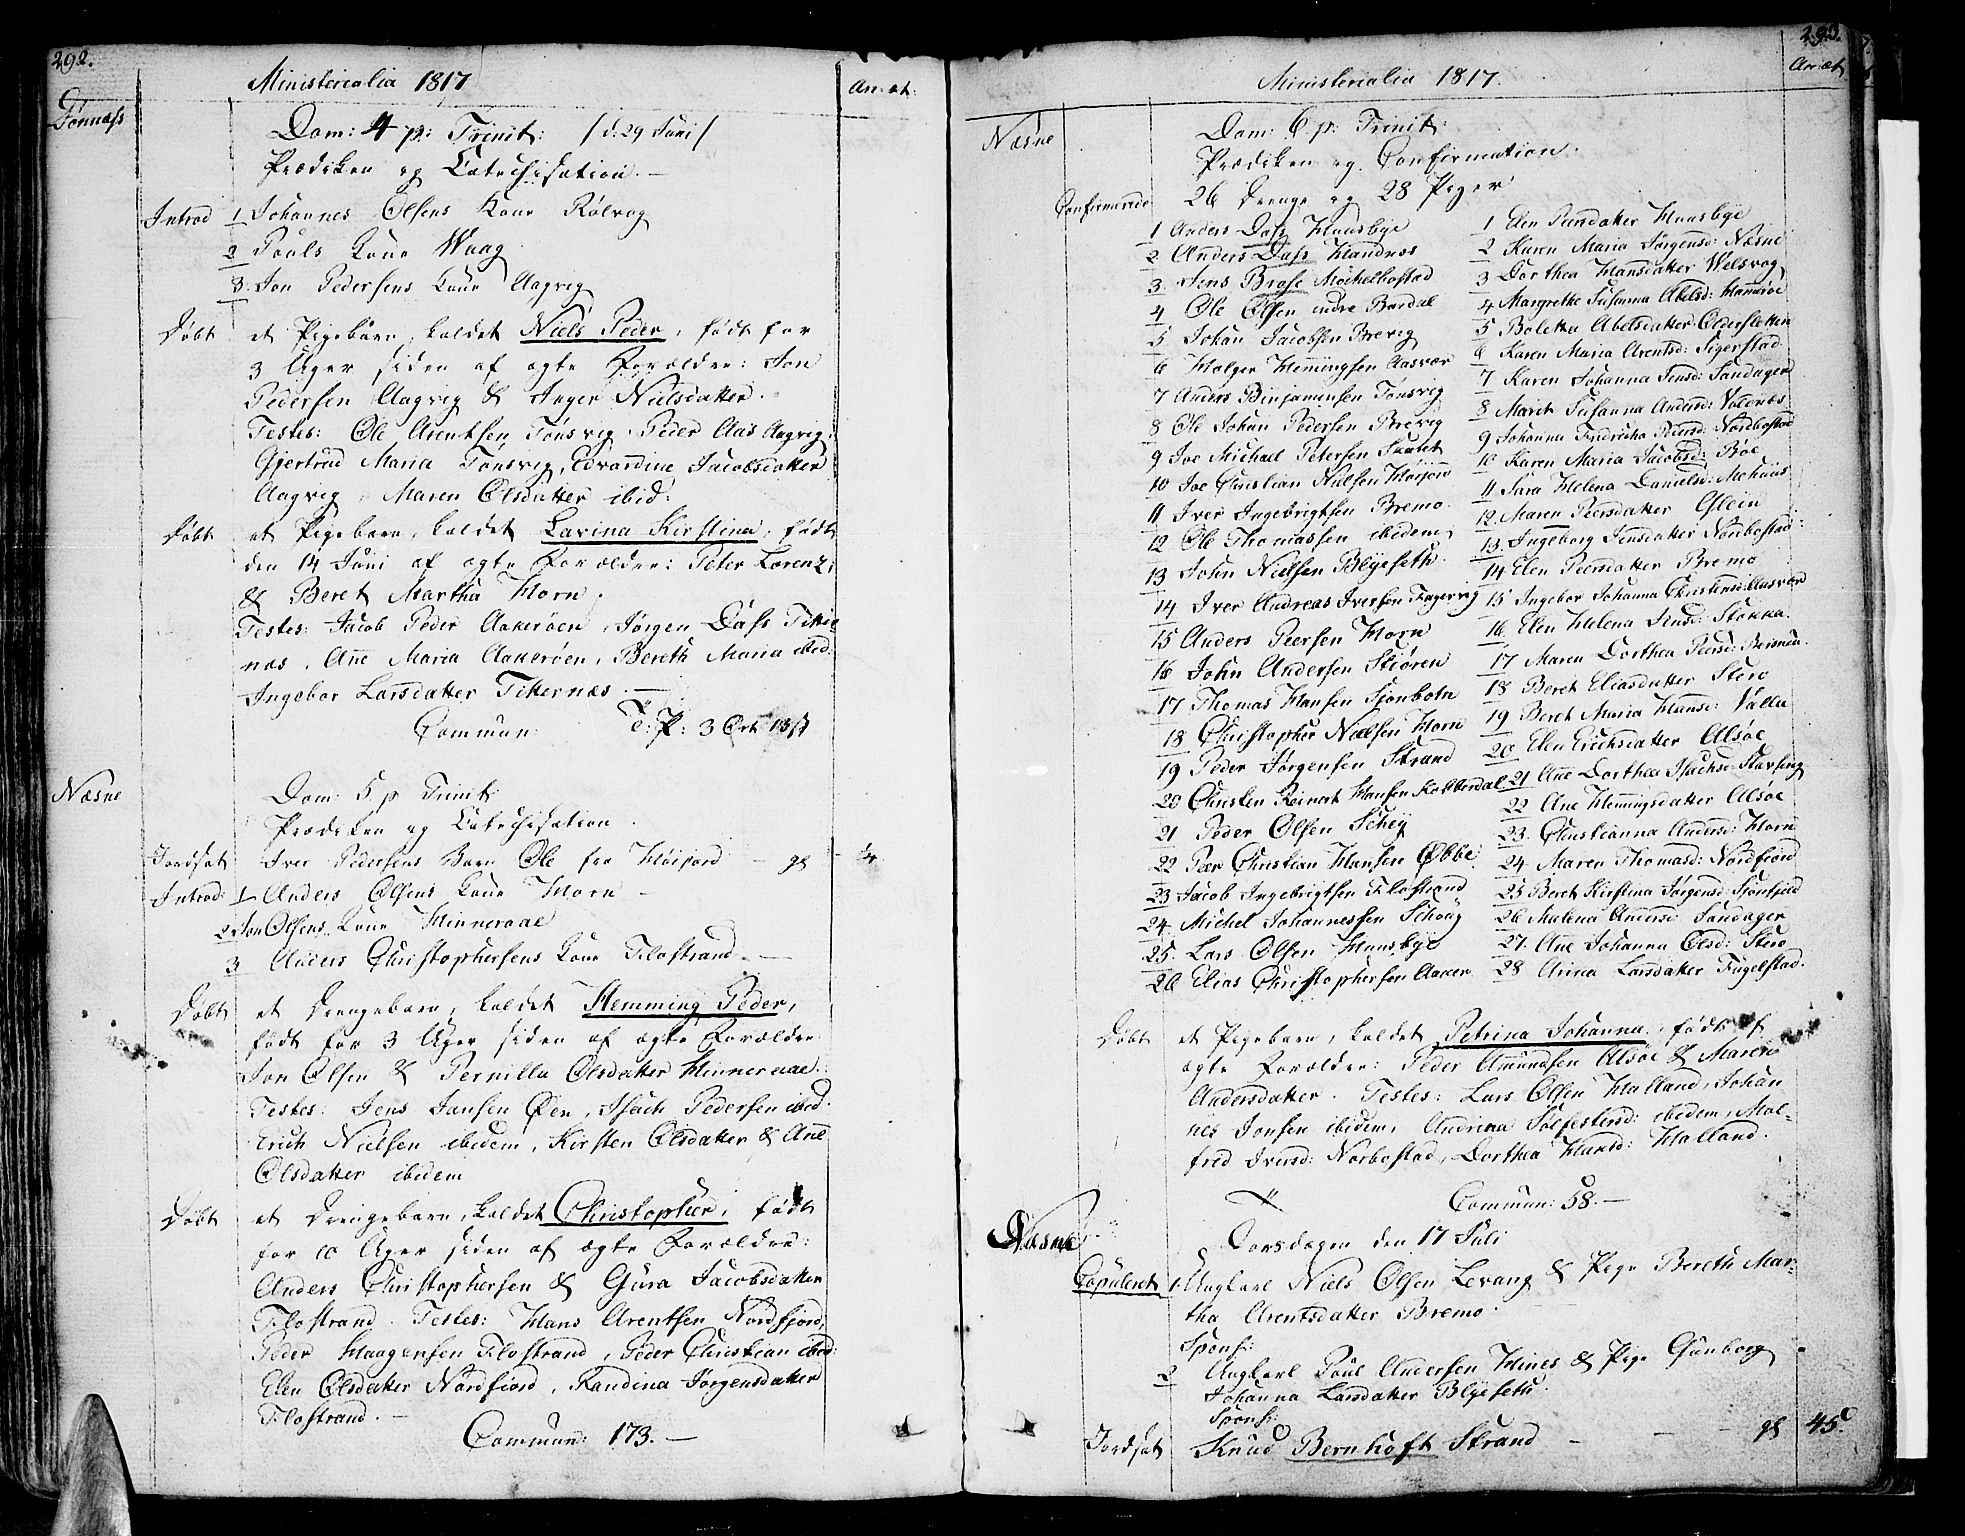 292.
Ministerialia 1817
An: æt:
Dønnæss
Dom: 4 p: Trinit: /d. 29 Juni/
Prædiken og Catechisation. —
Introd 1 Johannes Olsens Kone Rølvog
2 Pouls Kone Waag
3. Jon Pedersens Kone Aagvig
Døbt et Pigebarn, kaldet Niels Peder, født for
3 Uger siden af ægte Forældre: Jon
Pedersen Aagvig & Inger Nielsdatter.
Testes: Ole Arentsen Tønsvig, Peder Aas Aagvig,
Gjertrud Maria Tønsvig, Edvardine Jacobsdatter
Aagvig, Maren Olsdatter ibid:
Døbt et Pigebarn, kaldet Lavina Kirstina, født
den 14 Juni af ægte Forældre: Peter Lorentz
& Beret Martha Horn.
Testes: Jacob Peder Aakerøen, Jørgen Dass Titter
næs, Ane Maria Aakerøen, Bereth Maria ibid.
Ingebor Larsdatter Titternæs. —
Commun: T: P: 3 Ort 13 β
Næsne
Dom: 5 p Trinit:
Prædiken og Catechisation.
Jordsat Iver Pedersens Barn Ole fra Høijord — gl — 1/4
Introd: 1 Anders Olsens Kone Horn —
2 Jon Olsens Kone Hinneraae
3 Anders Christophersens Kone Flostrand. —
Døbt et Drengebarn, kaldet Hemming Peder,
født for 3 Uger siden af ægte Forældre
Jon Olsen & Pernilla Olsdatter Hinneraae.
Testes: Jens Jansen Øen, Isach Pedersen ibid.
Erich Nielsen ibidem, Kirsten Olsdatter & Ane
Olsdatter ibidem
Døbt et Drengebarn, kaldet Christopher, født
for 10 Uger siden af ægte Forældre:
Anders Christophersen & Gura Jacobsdatter
Flostrand. Testes: Hans Arentsen Nordfjord,
Peder Haagensen Flostrand, Peder Christian ibid:
Elen Olsdatter Nordfiord, Randina Jørgensdatter
Flostrand. —
Commun: 173. —
293.
Ministerialia 1817.
An: æt
Næsne
Dom: 6 p: Trinit:
Prædiken og Confirmation.
26 Drenge og 28 Piger
Confirmerede
1 Anders Dass Huusbye
2 Anders Dass Handnæs
3. Jens Brase Meihelbostad
4 Ole Olsen indre Bardal
5 Johan Jacobsen Brevig
6 Holger Hemingsen Aasvær
7 Anders Binjaminsen Tønsvig
8 Ole Johan Pedersen Brevig
9 Joe Michael Petersen
10 Joe Christian Nielsen Høijord
11 Iver Ingebrigtsen Bremo
12 Ole Thomassen ibidem
13 John Nielsen Blyeseth
14 Iver Andreas Iversen Fagervig
15 Anders Peersen Horn
16 John Andersen Stiøren
17 Thomas Hansen Sjonbotn
18 Christopher Nielsen Horn
19 Peder Jørgensen Strand
20 Christen Reinert Hansen Kobberdal
21 Peder Olsen Schey
22 Peer Christian Hansen Ebbe
23 Jacob Ingebrigtsen Flostrand
24. Michel Johannessen Schoug
25. Lars Olsen Huusbye
26 Elias Christophersen Aaker
1 Elen Peersdatter Huusbye
2 Karen Maria Jørgensd: Næsne
3 Dorthea Hansdatter Welsvog
4 Margrethe Susanna Abelsd: Hamarøe
5 Boletta Abelsdatter Oldersletten
6 Karen Maria Arentsd: Sigerstad
7 Karen Johanna Jensd: Sandager
8 Marit Susanna Andersd: Valdnæs
9 Johanna Fredricha Peersd: Nordbostad
10 Karen Maria Jacobsd: Bøe
11 Sara Helena Danielsd:
12 Maren Peersdatter Glein
13. Ingeborg Jensdatter Nordbostad
14 Elen Peersdatter Bremo
15 Ingebor Johanna Christensd: Aasvær
16 Elen Helena Jensd: Stokka
17 Maren Dorthea Peersd:
18 Beret Eliasdatter Storo
19 Beret Maria Hansd: Valla
20 Elen Erichsdatter Alsøe
21 Ane Dorthea Isachsd: Stavseng
22 Ane Hemmingsdatter Alsøe
23. Christianna Andersd: Horn
24 Maren Thomasd: Nordfjord
25 Beret Kirstina Jørgensd: Sjonfjeld
26 Malena Andersd: Sandager
27. Ane Johanna Olsd: Storo
28 Anna Larsdatter Fugelstad.
Døbt et Pigebarn, kaldet Petrina Johanna, født af
ægte Forældre: Peder Amundsen Alsøe & Maren
Andersdatter. Testes: Lars Olsen Halland, Johan
nes Jonsen ibidem, Andrina Sølfestersd: ibidem, Mal-
fred Iversd: Norbostad, Dorthea Hansd: Halland.
Commun: 58. —
Næsne
Torsdagen den 17 Juli
Copuleret 1. Ungkarl Niels Olsen Levang & Pige Bereth Mar-
tha Arentsdatter Bremo.
Spons:
2 Ungkarl Poul Andersen Hines & Pige Gunborg
Johanna Larsdatter Blyeseth.
Spons:
Jordsat Knud Bernhoft Strand — — — gl 45.